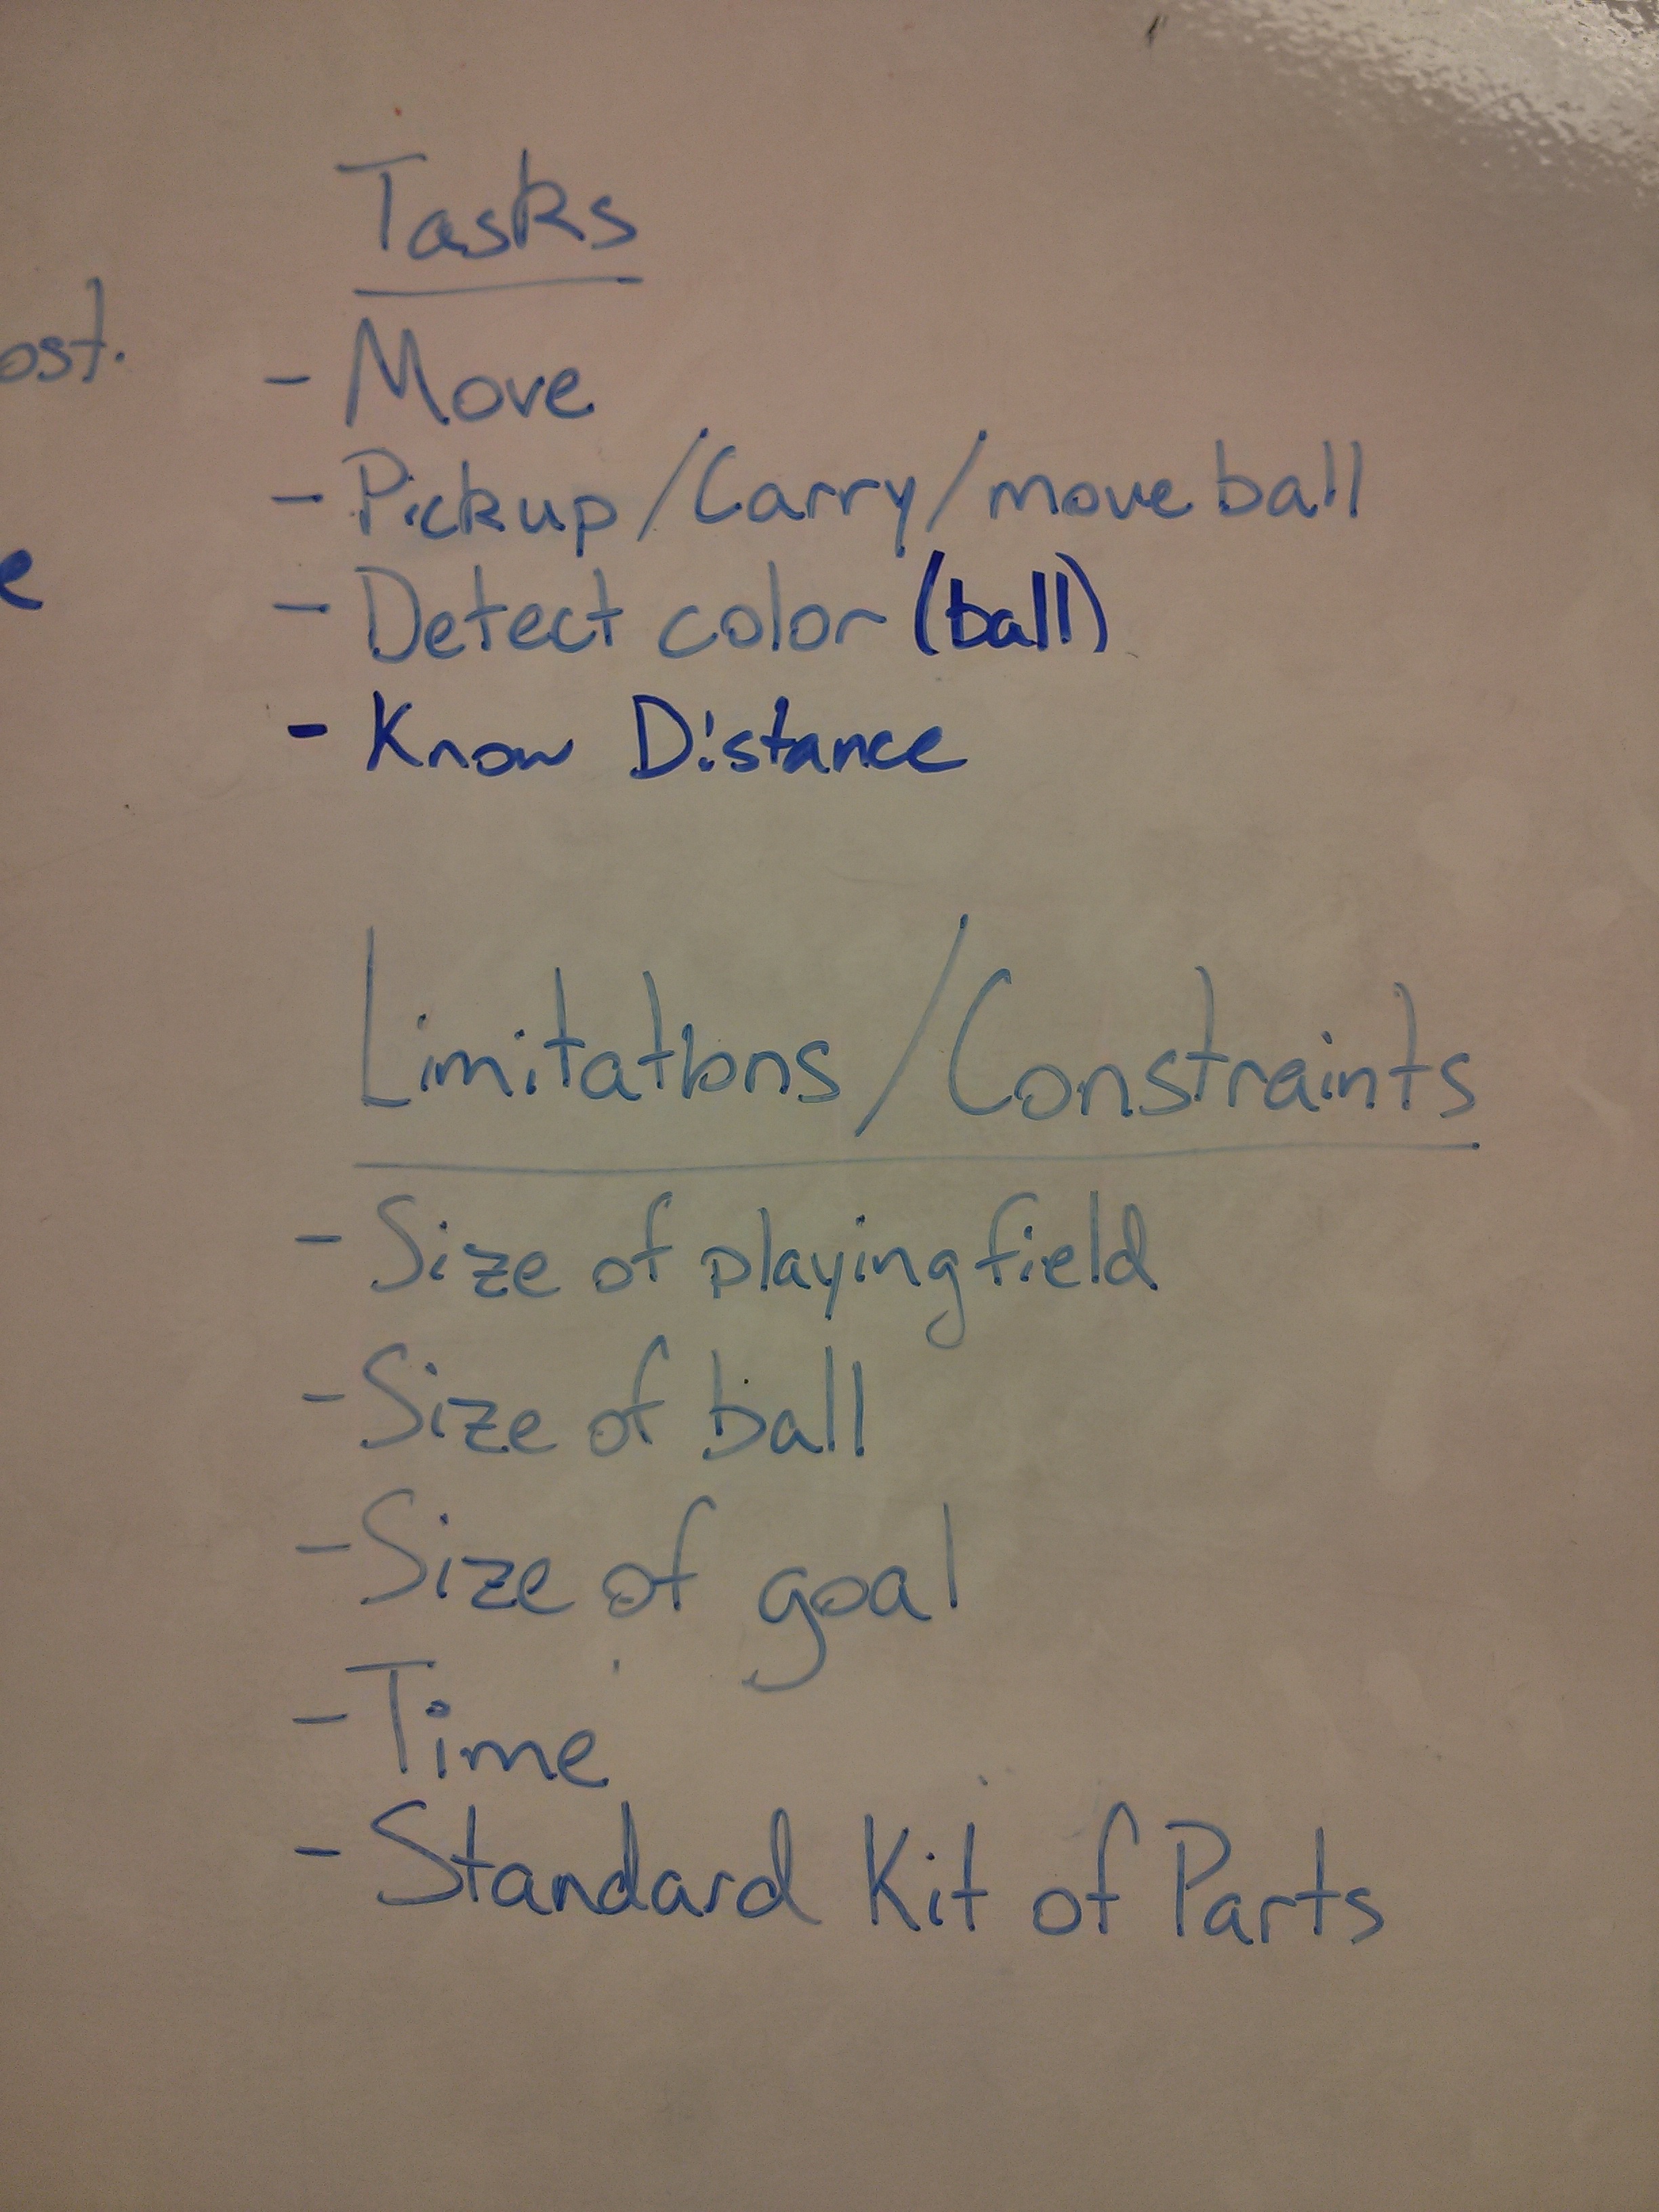 Tasks
- Move
- Pickup/Carry/move ball
- Detect color (ball)
- Know Distance
Limitations/Constraints
- Size of playing field
- Size of ball
- Size of goal
- Time
- Standard Kit of Parts